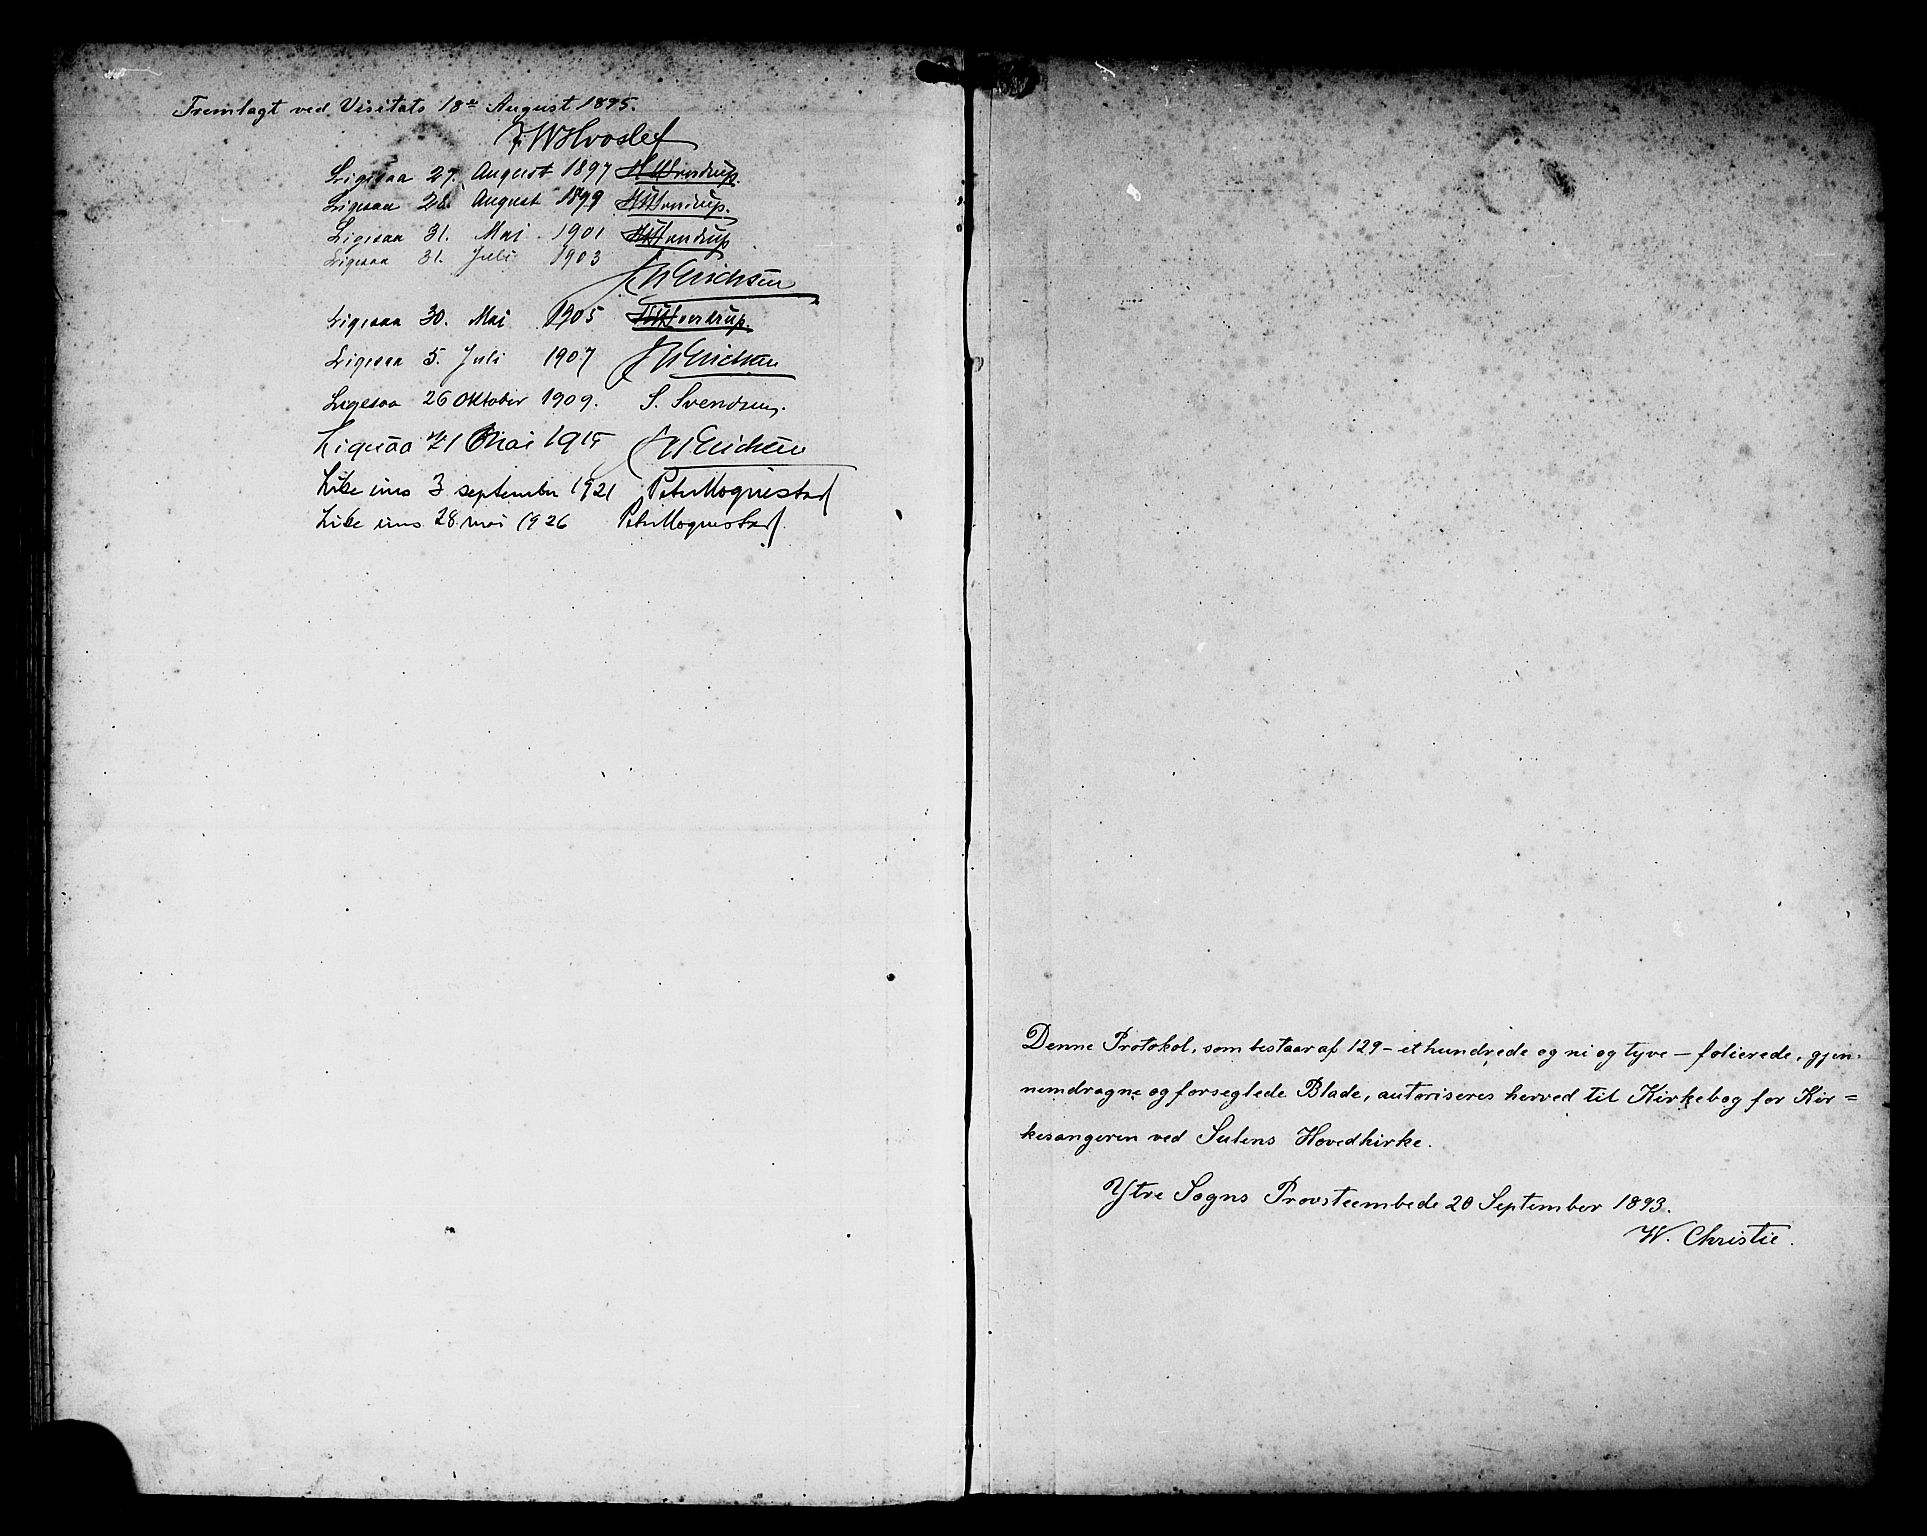 Fremlagt ved Visitats 18de August 1895.
FWHvoslef
Ligesaa 27. August 1897 HUSverdrup.
Ligesaa 28. August 1899 HUSverdrup.
Ligesaa 31. Mai 1901 HUSverdrup
Ligesaa 31. Juli 1903
Erichsen
Ligesaa 30. Mai 1905 HUSverdrup.
Ligesaa 5. Juli 1907 Erichsen
Ligesaa 26 Oktober 1909. S. Svendsen.
Ligesaa Mai Erichsen
Like eins 3 september 1921 Peter Hognestad
Like eins 28. mai 1926 Peter Hognestad.
Denne Protokol, som bestaar af 129 – et hundrede og ni og tyve – folierede, gjen-
nemdragne og forseglede Blade, autoriseres herved til Kirkebog for Kir=
kesangeren ved Sulens Hovedkirke.
Ytre Sogns Provsteembede 20 September 1893.
W. Christie.